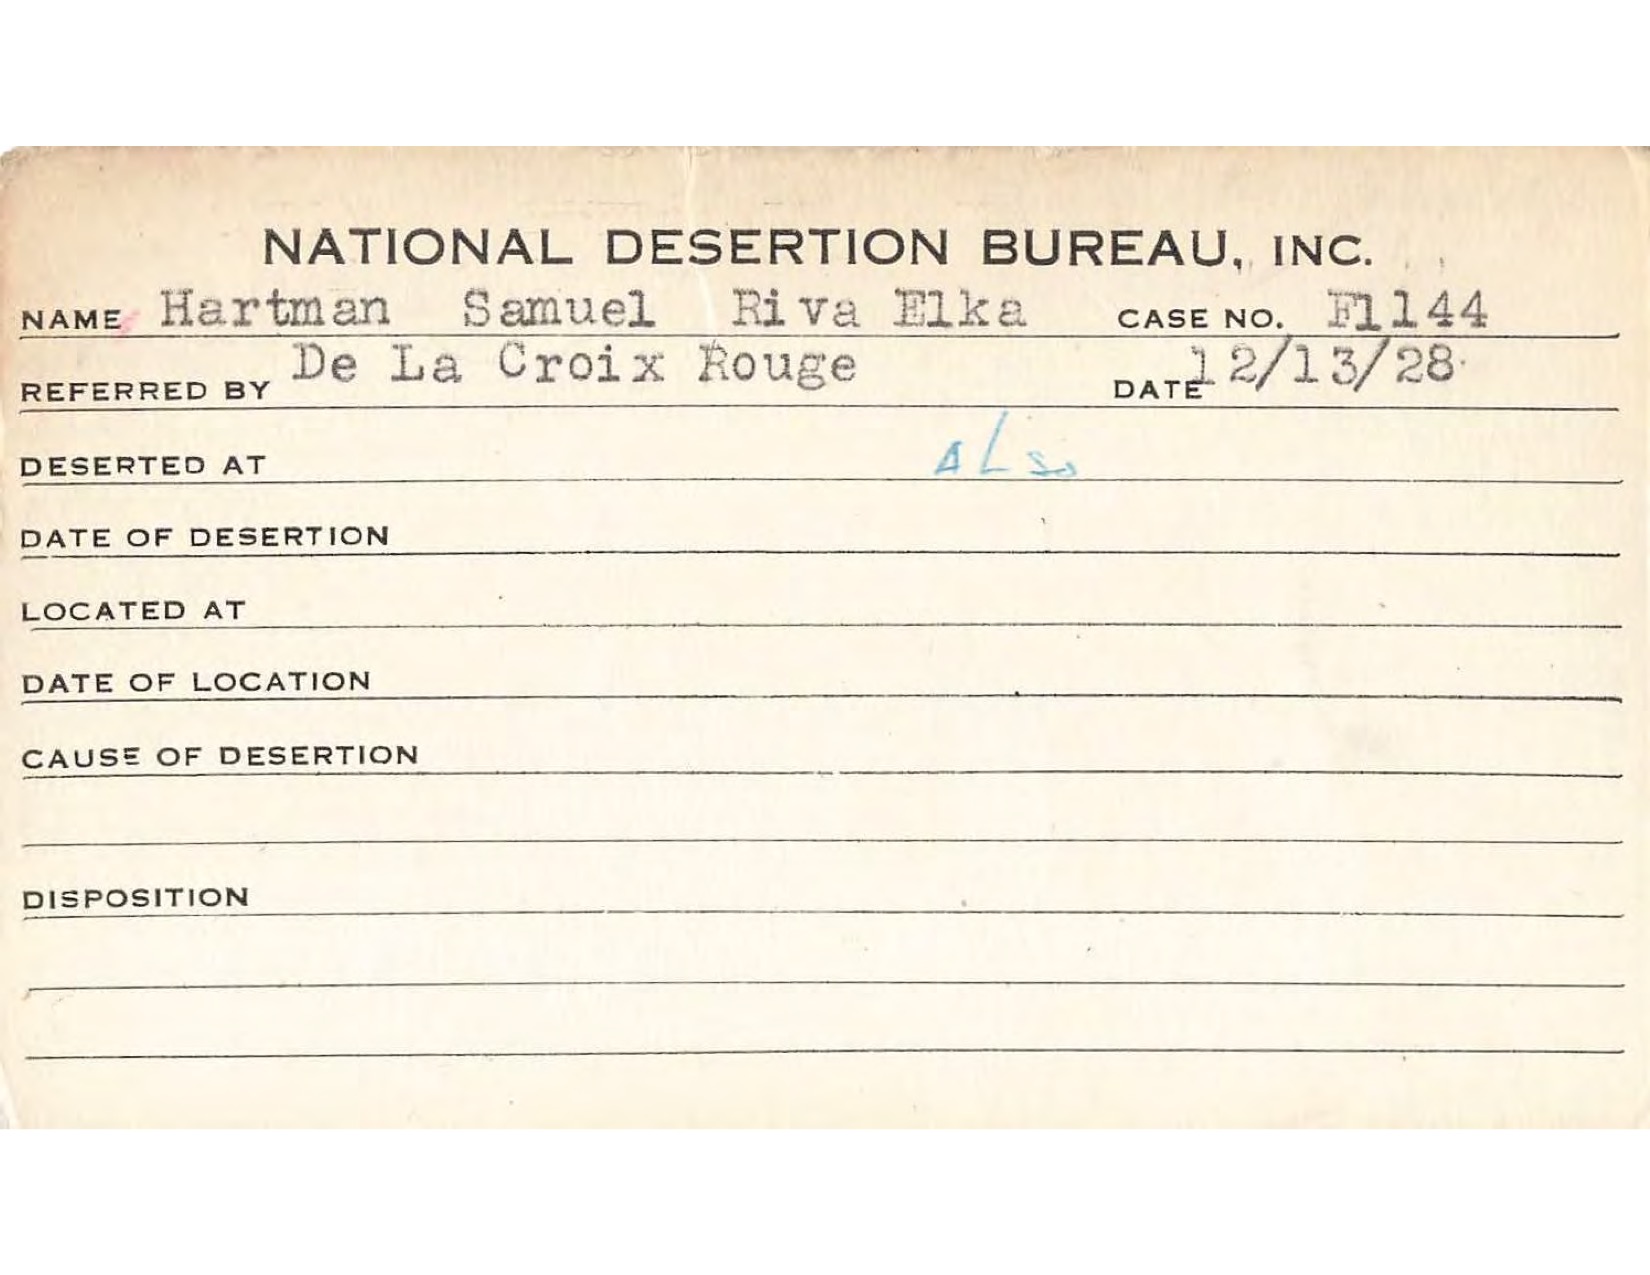 NATIONAL DESERTION BUREAU, INC.
NAME Hartman Samuel Riva Elka CASE NO. F1144
REFERRED BY De La Croix Rouge DATE 12/13/28
DESERTED AT ALSO
DATE OF DESERTION
LOCATED AT
DATE OF LOCATION
CAUSE OF DESERTION
DISPOSITION